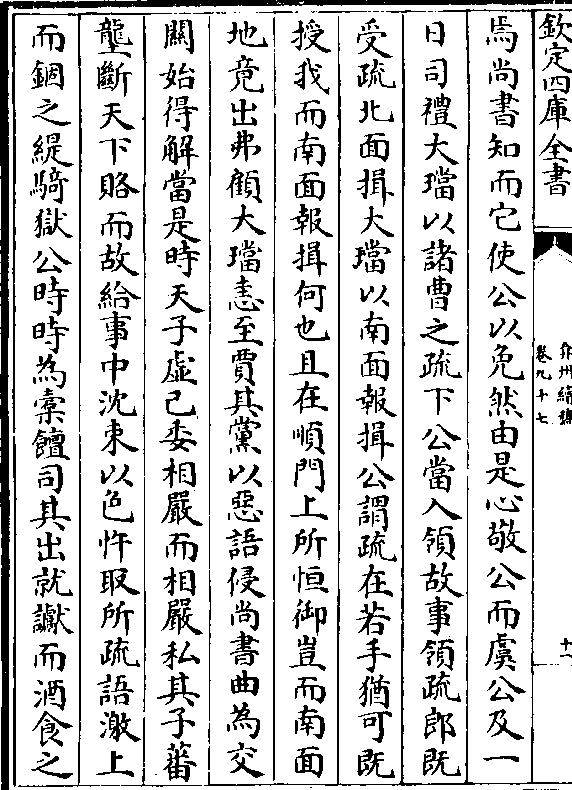 欽定四庫全書
弇州續稿
卷九十七
十一
焉尚書知而它使公以免然由是心敬公而虞公及一
日司禮大璫以諸曹之疏下公當入領故事領疏郎既
受疏北面揖大璫以南面報揖公謂疏在若手猶可既
授我而南面報揖何也且在順門上所恒御豈而南面
地竟出弗顧大璫恚至賈其黨以惡語侵尚書曲為交
關始得解當是時天子虛己委相嚴而相嚴私其子蕃
壟斷天下賂而故給事中沈束以色忤取所疏語激上
而錮之緹騎獄公時時為橐饘司其出就讞而酒食之